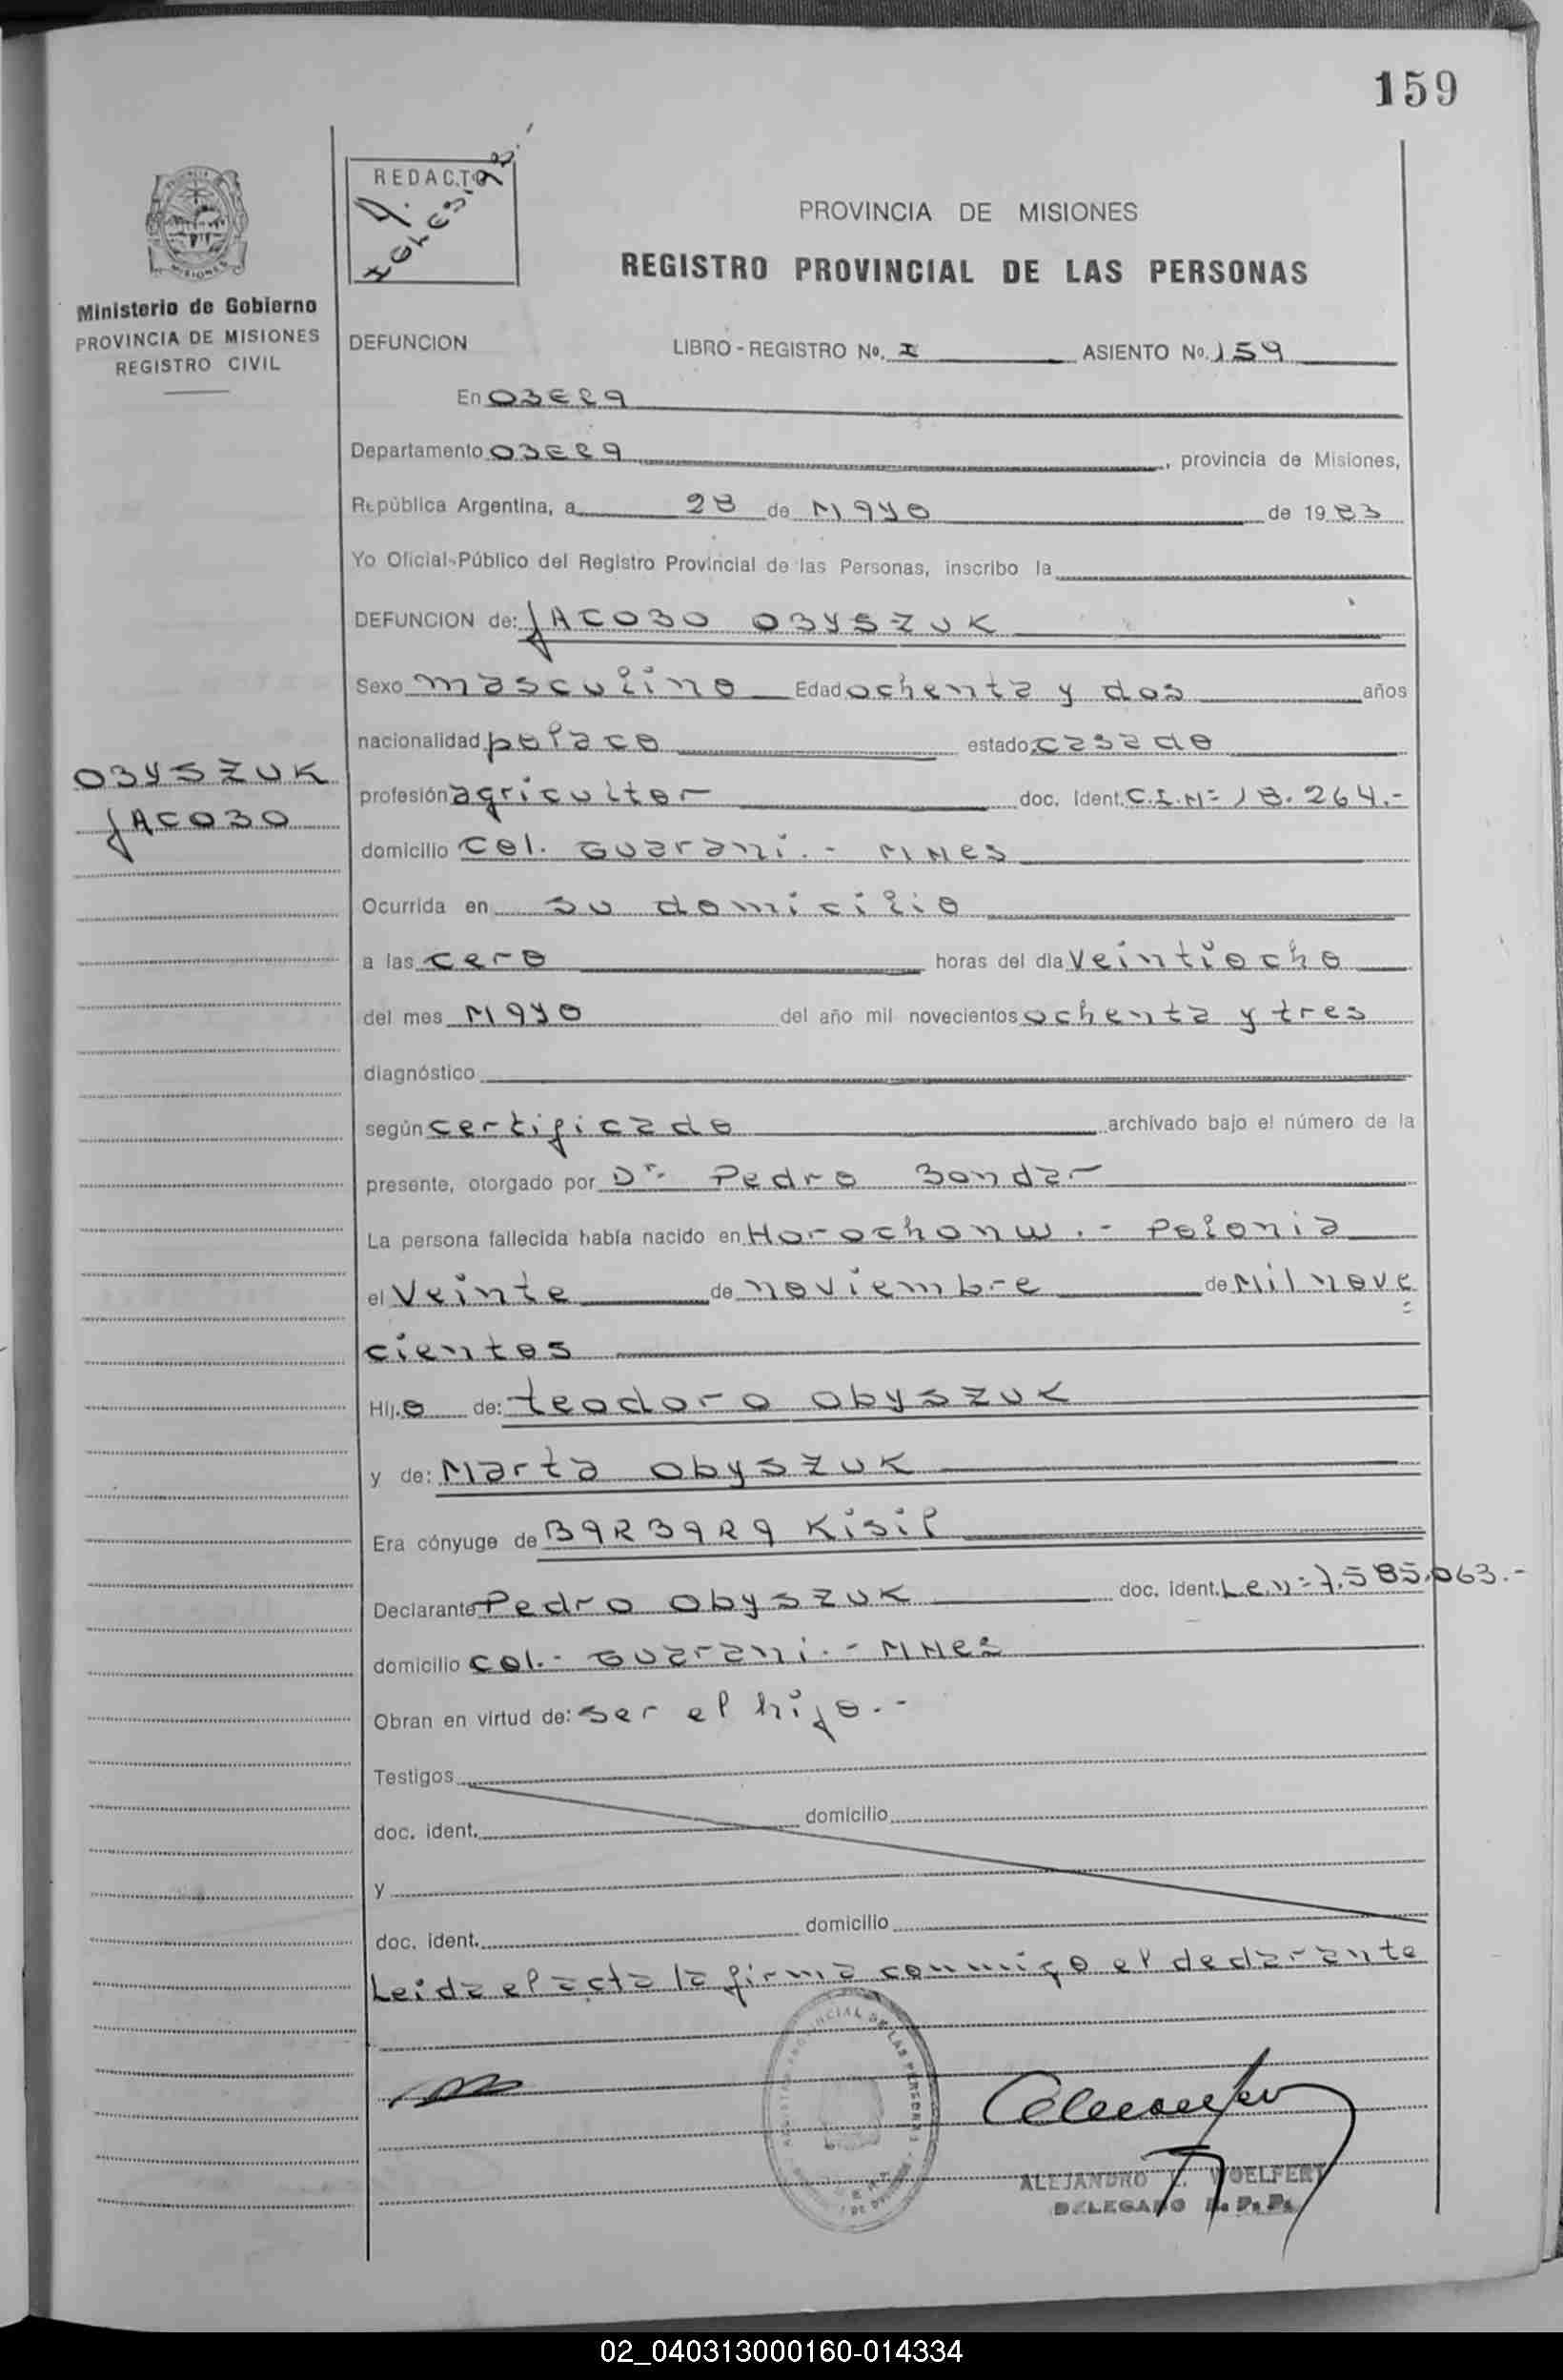 159
REDACTO
PROVINCIA DE MISIONES
REGISTRO PROVINCIAL DE LAS PERSONAS
Ministerio de Gobierno
PROVINCIA DE MISIONES
REGISTRO CIVIL
DEFUNCION LIBRO - REGISTRO No. I ASIENTO No. 159
En OBERA
Departamento OBERA, provincia de Misiones,
República Argentina, a 28 de MAYO de 1983
Yo Oficial-Público del Registro Provincial de las Personas, inscribo la
DEFUNCION de: JACOBO OBYSZUK
Sexo masculino Edad ochenta y dos años
nacionalidad polaco estado casado
OBYSZUK
JACOBO
profesión agricultor doc. Ident. C.I.Nº 18.264.-
domicilio Col. Guarani.- MNes
Ocurrida en su domicilio
a las cero horas del día veintiocho
del mes MAYO del año mil novecientos ochenta y tres
diagnóstico
según certificado archivado bajo el número de la
presente, otorgado por Dr. Pedro Bondar
La persona fallecida había nacido en Horochonw.- Polonia
el Veinte de noviembre de Mil nove
cientos
Hij.o de: teodoro obyszuk
y de: Marta obyszuk
Era cónyuge de BARBARA Kisil
Declarante Pedro obyszuk doc. ident. L.e.nº 7.585.063.-
domicilio Col.- Guarani.- MNes
Obran en virtud de: ser el hijo.-
Testigos
doc. ident. domicilio
y
doc. ident. domicilio
Leida el acta la firma conmigo el declarante
ALEJANDRO L. WOELFERT
DELEGADO R. P. P.
02_040313000160-014334